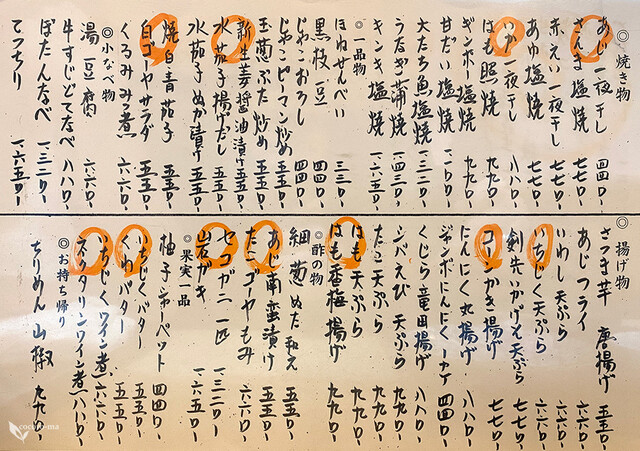 ◎焼き物
あじ一夜干し 四四〇-
さんま塩焼 七七〇-
赤えい一夜干し 七七〇-
あゆ塩焼 七七〇-
いか一夜干し 八八〇-
はも照焼 九九〇-
ギンポー塩焼 九九〇-
甘だい塩焼 一一〇〇-
大たち魚塩焼 一三二〇-
うなぎ蒲焼 一四三〇-
キンキ塩焼 一六五〇-
◎一品物
ほねせんべい 三三〇-
黒枝豆 四四〇-
じゃこおろし 四四〇-
じゃこピーマン炒め 五五〇-
玉葱ぶた炒め 五五〇-
新生姜醤油漬け 五五〇-
水茄子揚げだし 五五〇-
水茄子ぬか漬け 五五〇-
焼白青茄子 五五〇-
白ゴーヤサラダ 五五〇-
くるみみつ煮 六六〇-
◎小なべ物
湯豆腐 六六〇-
牛すじどてなべ 八八〇-
ぼたんなべ 一三二〇-
てっちり 一六五〇-
◎揚げ物
さつま芋 唐揚げ 五五〇-
あじフライ 六六〇-
いわし天ぷら 六六〇-
いちじく天ぷら 六六〇-
剣先いかげそ天ぷら 七七〇-
コーンかき揚げ 七七〇-
にんにく丸揚げ 四四〇-
ジャンボにんにくーカケ 四四〇-
くじら竜田揚げ 八八〇-
シバえび天ぷら 九九〇-
たこ天ぷら 九九〇-
はも天ぷら 九九〇-
はも香梅揚げ 九九〇-
◎酢の物
細葱ぬた和え 五五〇-
あじ南蛮漬け 五五〇-
たこゴーヤもみ 六六〇-
セコガニ一匹 一三二〇-
岩がき 一六五〇-
◎果実一品
柚子シャーベット 四四〇-
いちじくバター 五五〇-
くわバター 五五〇-
いちじくワイン煮 六六〇-
ネクタリンワイン煮 八八〇-
◎お持ち帰り
ちりめん山椒 九九〇-